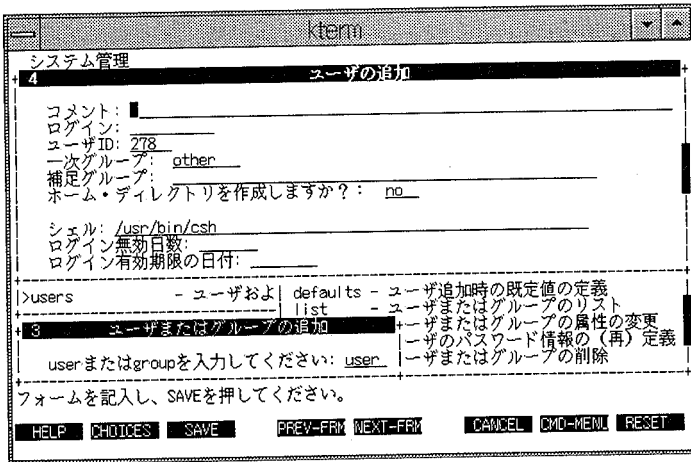 kterm
システム管理
4 ユーザの追加
コメント:
ログイン:
ユーザID: 278
一次グループ: other
補足グループ:
ホーム・ディレクトリを作成しますか?: no
シェル: /usr/bin/csh
ログイン無効日数:
ログイン有効期限の日付:
>users - ユーザおよ
defaults - ユーザ追加時の既定値の定義
list - ユーザまたはグループのリスト
3 ユーザまたはグループの追加
ーザまたはグループの属性の変更
ーザのパスワード情報の(再)定義
userまたはgroupを入力してください: user
ーザまたはグループの削除
フォームを記入し、SAVEを押してください。
HELP CHOICES SAVE PREV-FRM NEXT-FRM CANCEL CMD-MENU RESET